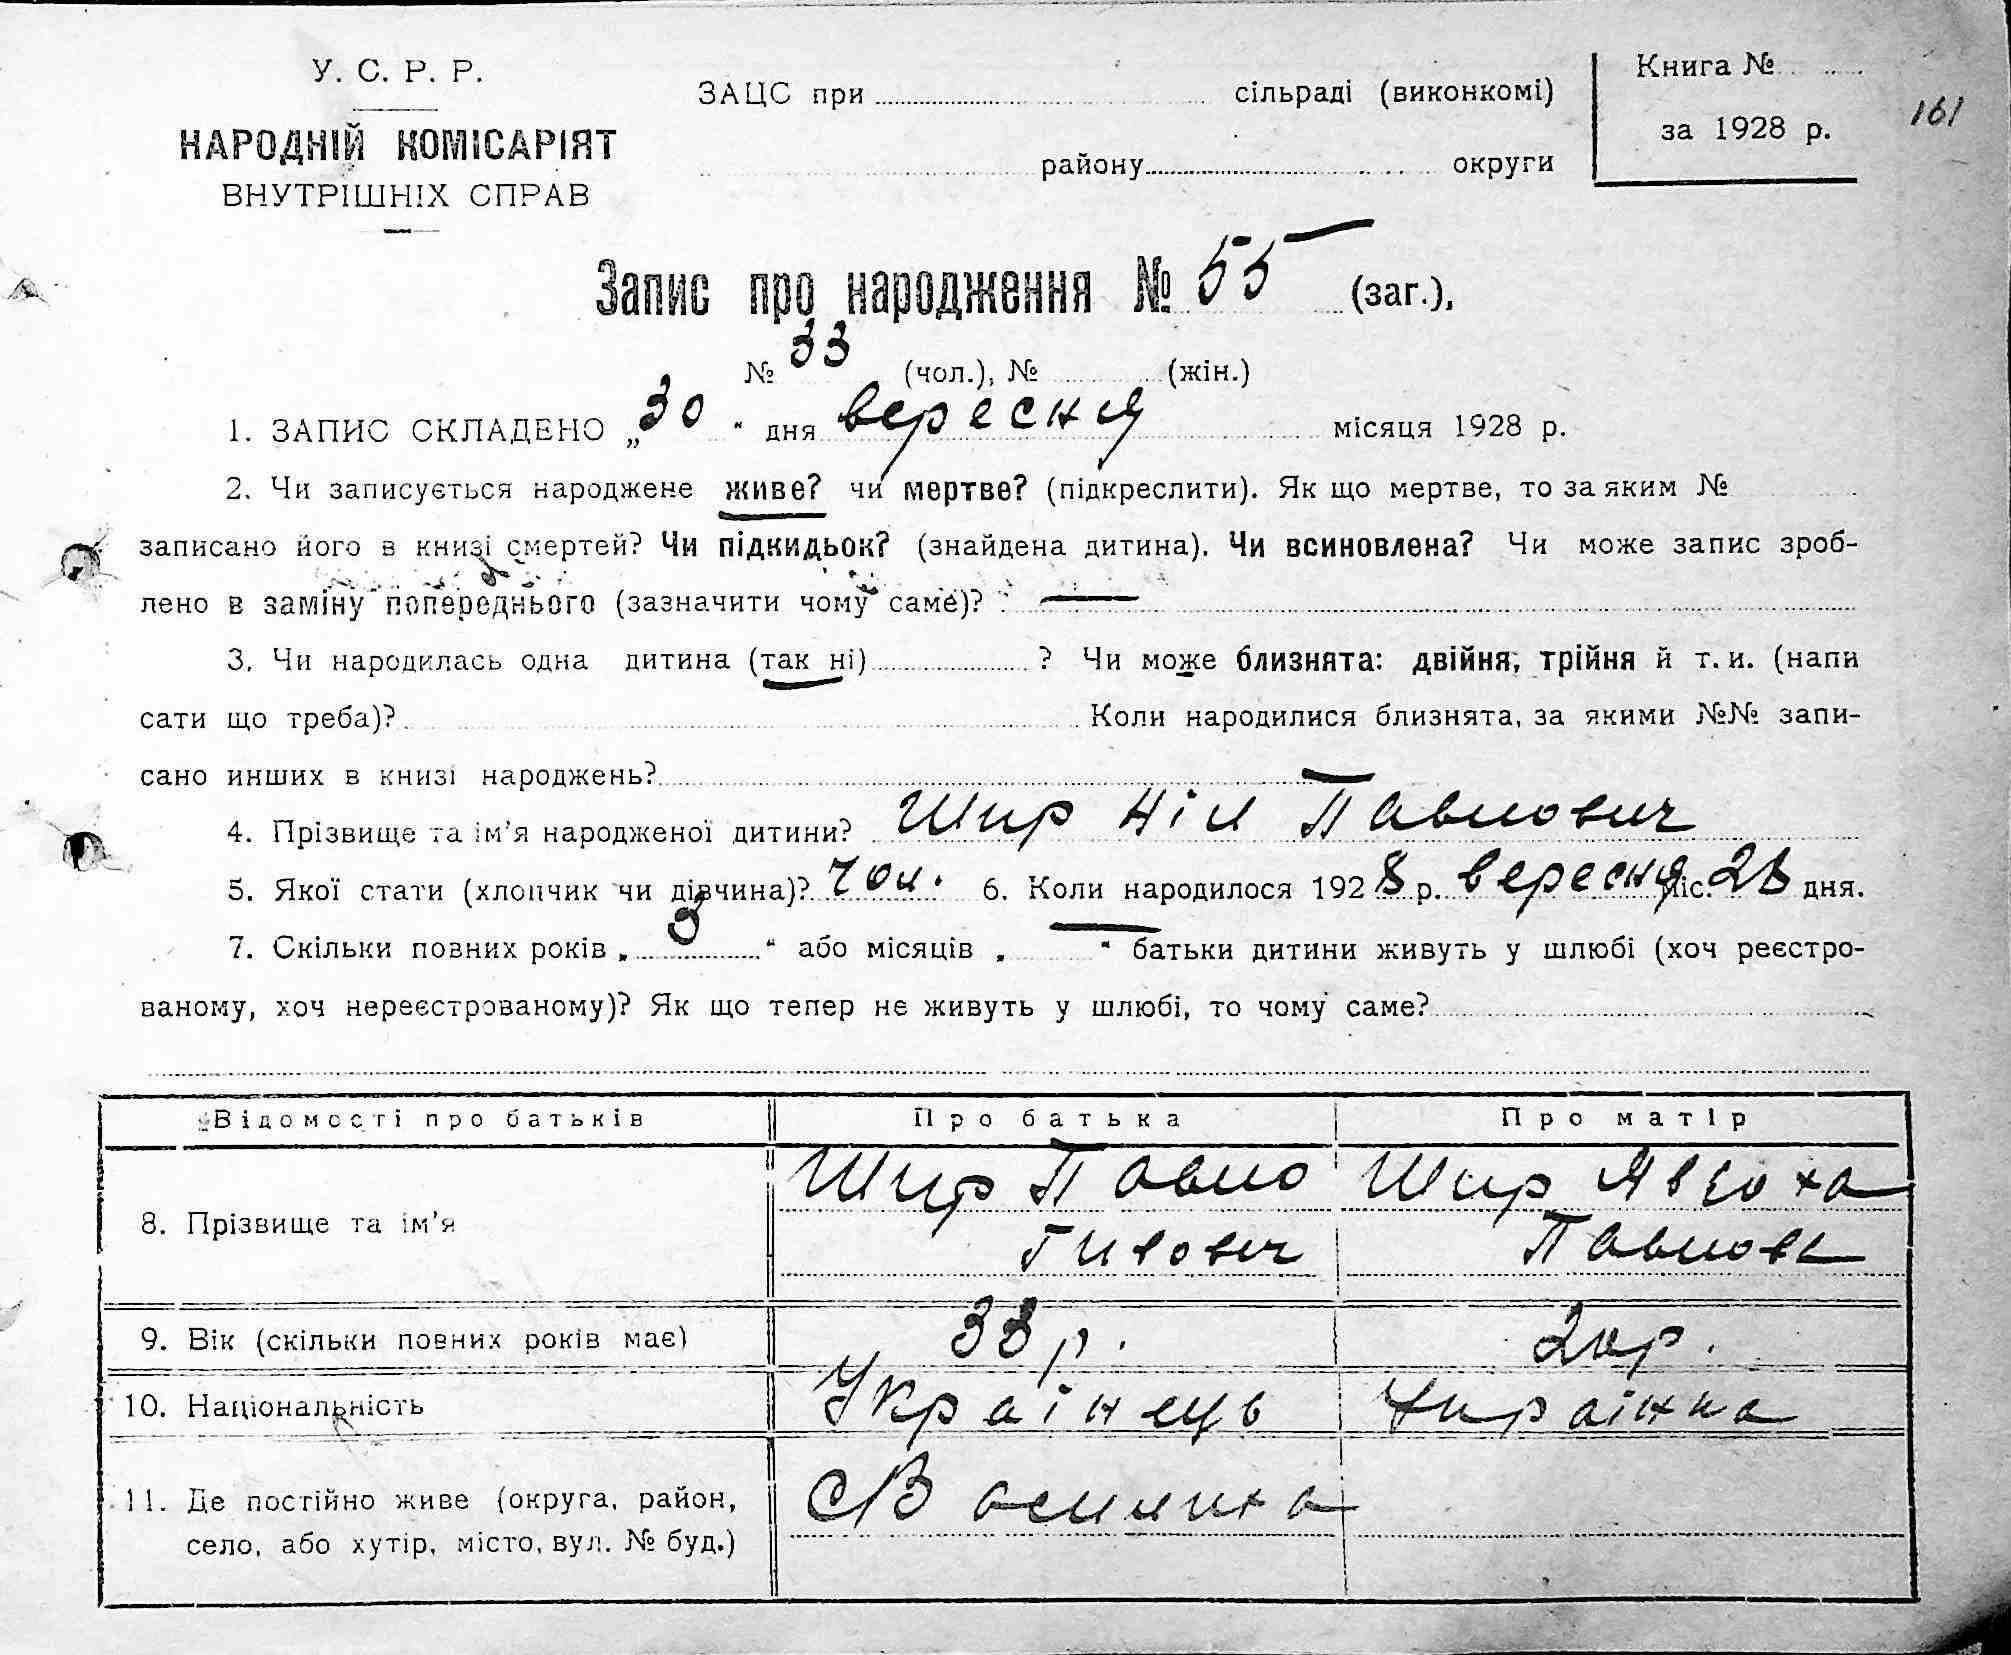 У. С. Р. Р.
НАРОДНІЙ КОМІСАРІЯТ
ВНУТРІШНІХ СПРАВ
ЗАЦС при сільраді (виконкомі)
району округи
Книга №
за 1928 р.
161
Запис про народження № 55 (заг.),
№ 33 (чол.), № (жін.)
1. ЗАПИС СКЛАДЕНО „30“ дня вересня місяця 1928 р.
2. Чи записується народжене живе? чи мертве? (підкреслити). Як що мертве, то за яким №
записано його в книзі смертей? Чи підкидьок? (знайдена дитина). Чи всиновлена? Чи може запис зроб-
лено в заміну попереднього (зазначити чому саме)? —
3. Чи народилась одна дитина (так ні) ? Чи може близнята: двійня, трійня й т. и. (напи
сати що треба)? Коли народилися близнята, за якими №№ запи-
сано инших в книзі народжень?
4. Прізвище та ім’я народженої дитини? Шир Ніл Павлович
5. Якої стати (хлопчик чи дівчина)? чол. 6. Коли народилось 1928 р. вересня міс. 28 дня.
7. Скільки повних років „3“ або місяців „—“ батьки дитини живуть у шлюбі (хоч реєстро-
ваному, хоч нереєстрованому)? Як що тепер не живуть у шлюбі, то чому саме?
Відомості про батьків Про батька Про матір
8. Прізвище та ім’я Шир Павло Шир Явдоха
Павловн
9. Вік (скільки повних років має) 33 р. 20 р.
10. Національність Українець Українка
11. Де постійно живе (округа, район,
село, або хутір, місто, вул. № буд.)